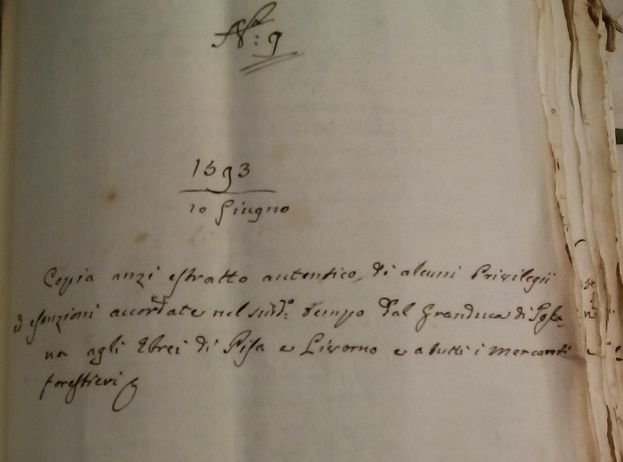 N.º 9
1593
10 Giugno
Copia anzi estratto autentico, di alcuni Privilegii
d esenzioni accordate nel sud.º tempo dal Granduca di Tosca,
na agli Ebrei di Pisa e Livorno e a tutti i mercanti
forestieri